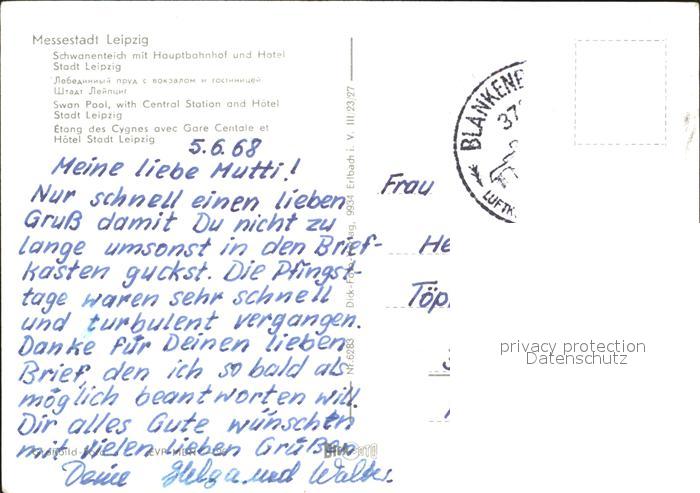 Messestadt Leipzig
Schwanenteich mit Hauptbahnhof und Hotel
Stadt Leipzig
Лебединный пруд с вокзалом и гостиницей
Штадт Лейпциг
Swan Pool, with Central Station and Hôtel
Stadt Leipzig
Étang des Cygnes avec Gare Centale et
Hôtel Stadt Leipzig
5.6.68
Meine liebe Mutti!
Nur schnell einen lieben
Gruß damit Du nicht zu
lange umsonst in den Brief-
kasten guckst. Die Pfingst-
tage waren sehr schnell
und turbulent vergangen.
Danke für Deinen lieben
Brief, den ich so bald als
möglich beantworten will.
Dir alles Gute wünschen
mit vielen lieben Grüßen
Deine Helga und Walter.
9934 Erlbach i. V. III/23/27
Nr. 6283
BLANKENB
37
LUFTK
Frau
He
Töp
privacy protection
Datenschutz